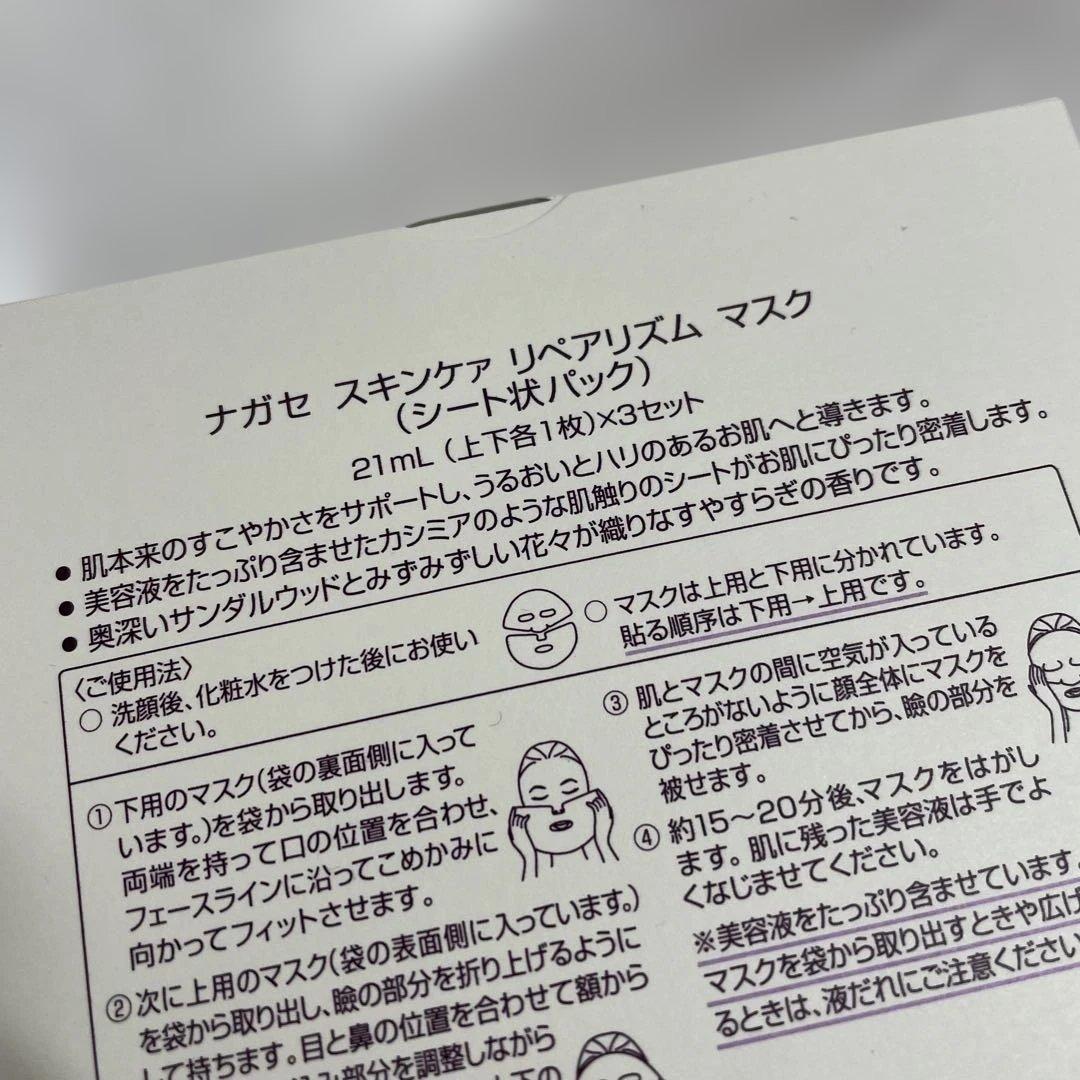 ナガセ スキンケァ リペアリズム マスク
(シート状パック)
21mL (上下各1枚)×3セット
● 肌本来のすこやかさをサポートし、うるおいとハリのあるお肌へと導きます。
● 美容液をたっぷり含ませたカシミアのような肌触りのシートがお肌にぴったり密着します。
● 奥深いサンダルウッドとみずみずしい花々が織りなすやすらぎの香りです。
〈ご使用法〉
○ 洗顔後、化粧水をつけた後にお使い
ください。
○ マスクは上用と下用に分かれています。
貼る順序は下用→上用です。
① 下用のマスク(袋の裏面側に入って
います。)を袋から取り出します。
両端を持って口の位置を合わせ、
フェースラインに沿ってこめかみに
向かってフィットさせます。
② 次に上用のマスク(袋の表面側に入っています。)
を袋から取り出し、瞼の部分を折り上げるように
して持ちます。目と鼻の位置を合わせて額から
み部分を調整しながら
下の
③ 肌とマスクの間に空気が入っている
ところがないように顔全体にマスクを
ぴったり密着させてから、瞼の部分を
被せます。
④ 約15～20分後、マスクをはがし
ます。肌に残った美容液は手でよ
くなじませてください。
※美容液をたっぷり含ませています。
マスクを袋から取り出すときや広げ
るときは、液だれにご注意ください